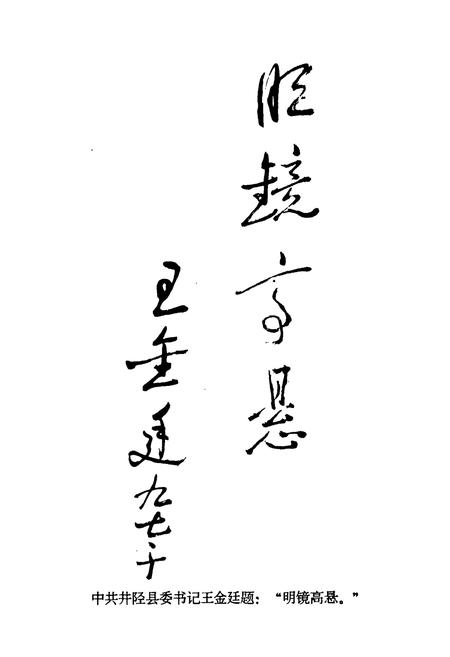 明镜高悬
王金廷
中共井陉县委书记王金廷题：“明镜高悬。”